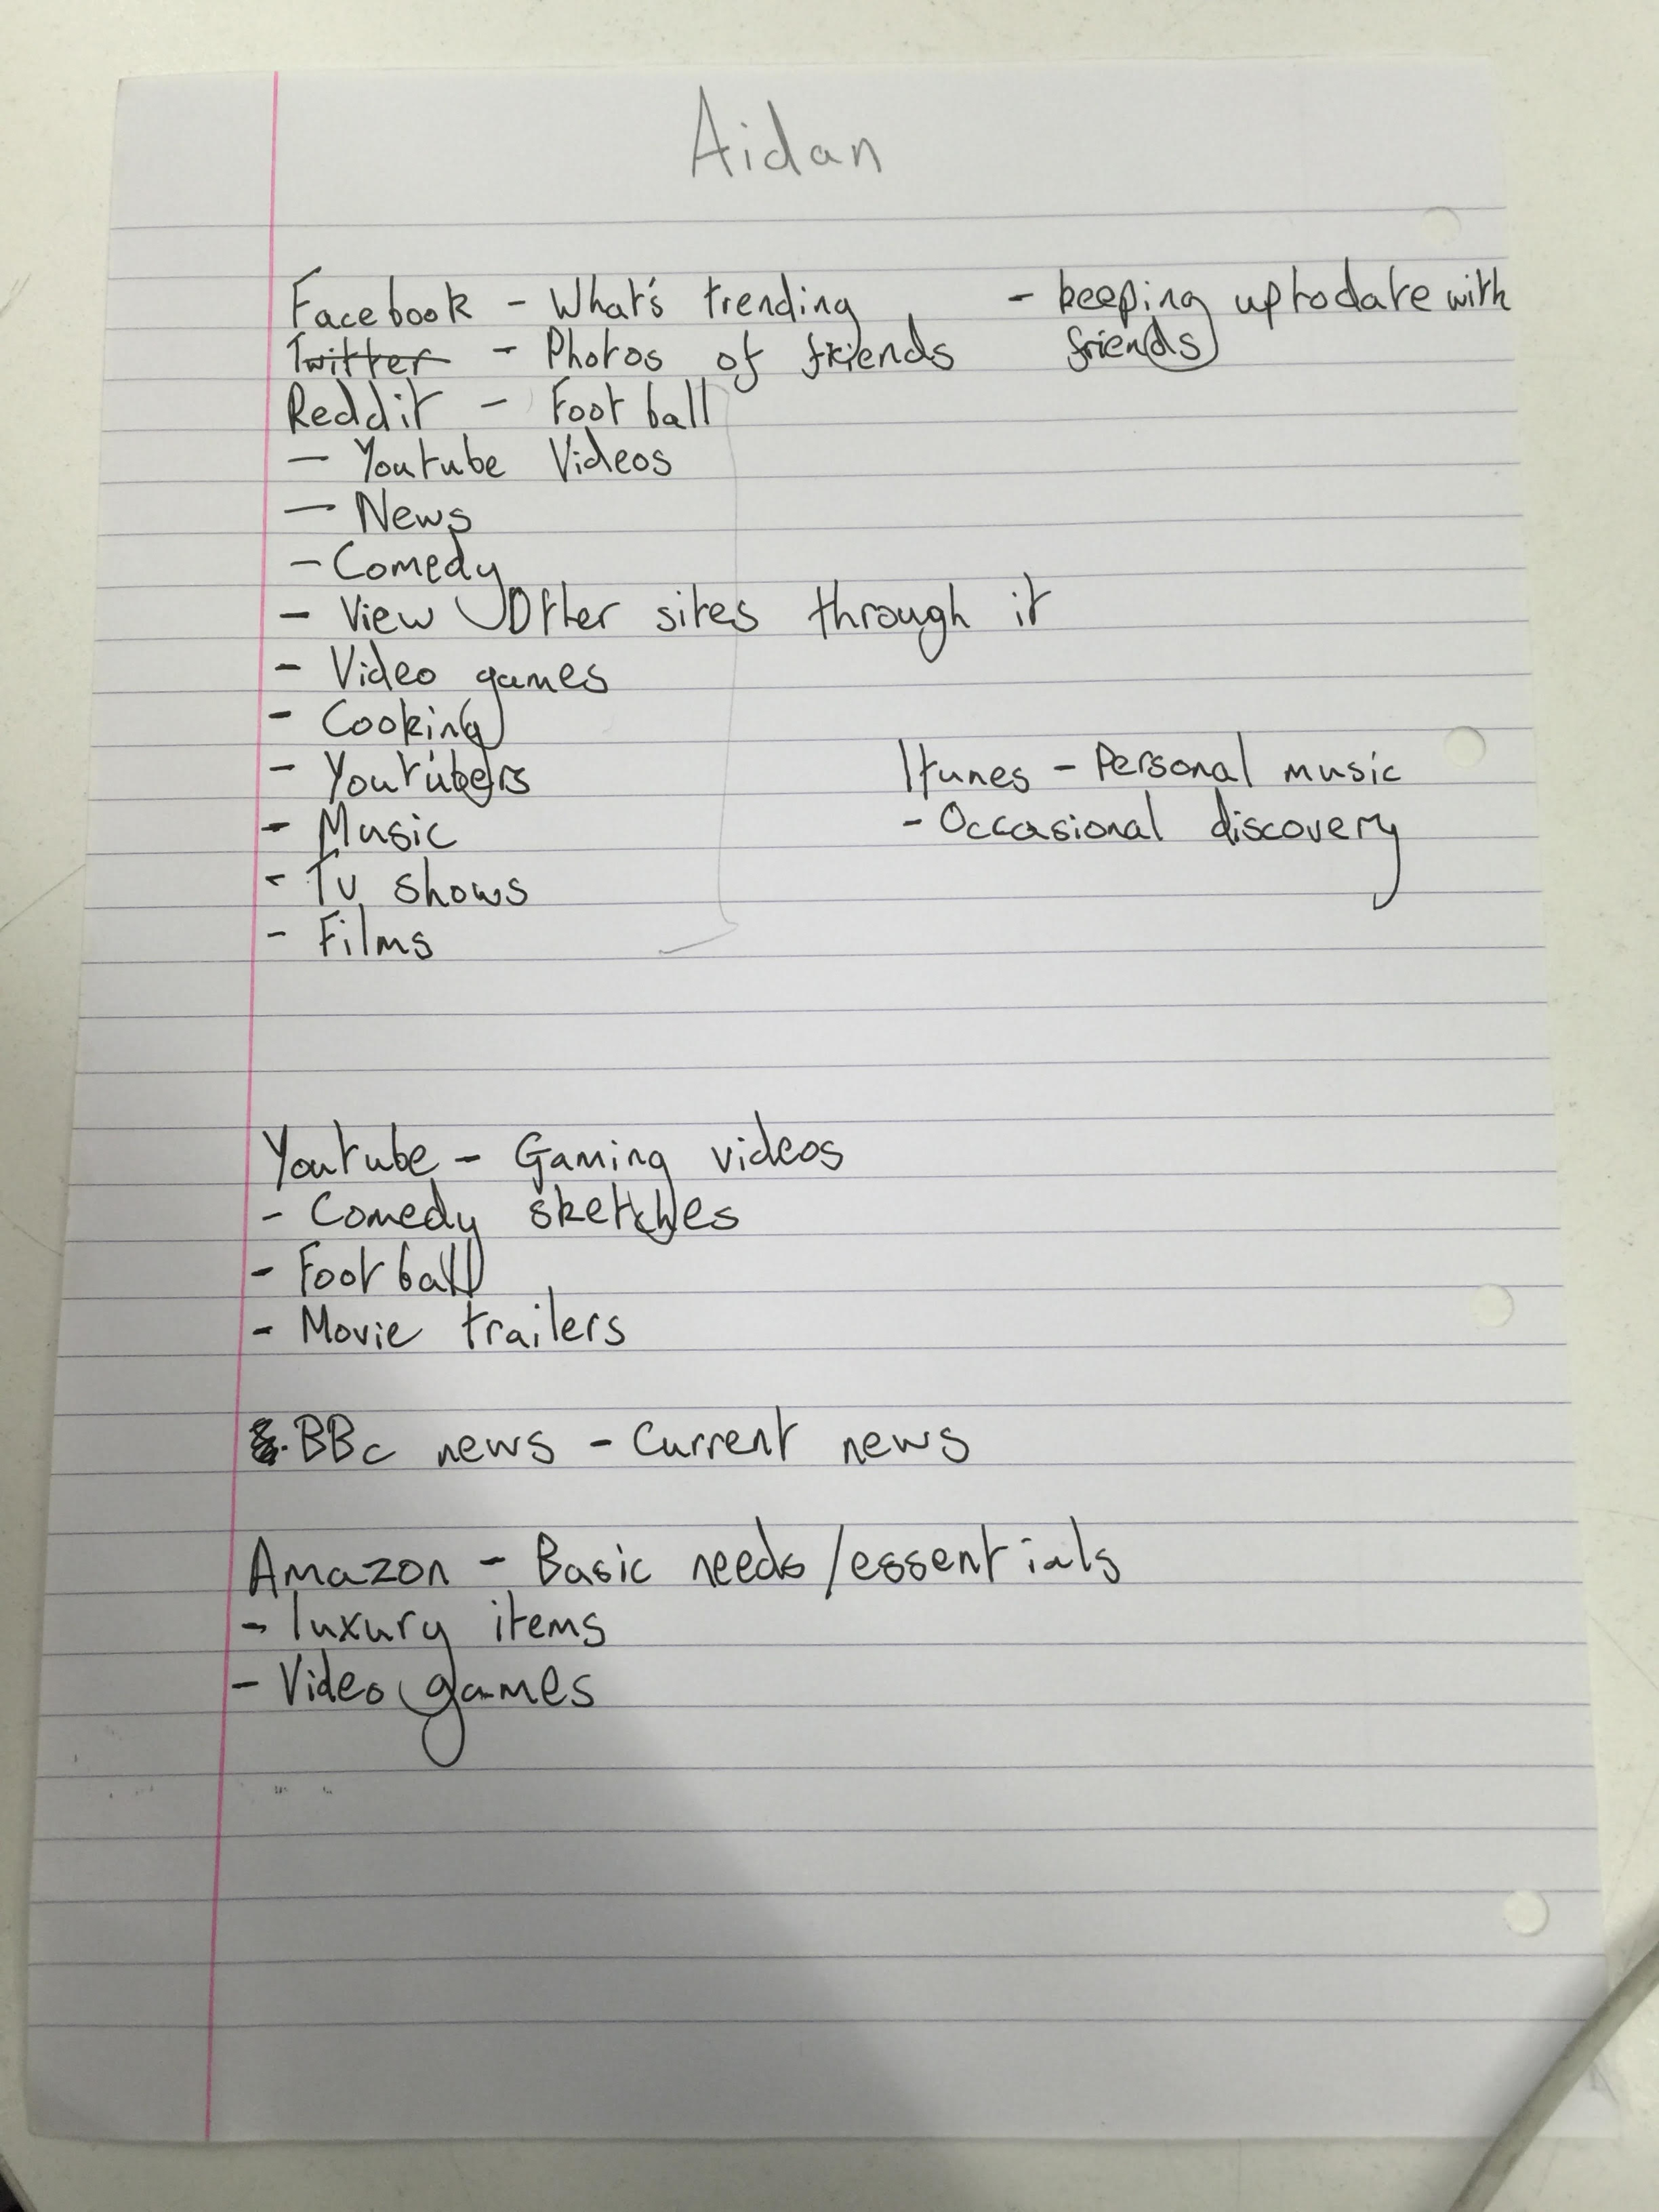 Aidan
Facebook - What's trending - keeping uptodate with
Twitter - Photos of friends friends
Reddit - Football
- Youtube Videos
- News
- Comedy
- View Other sites through it
- Video games
- Cooking
- Youtubers
- Music
- Tv shows
- Films
Itunes - Personal music
- Occasional discovery
Youtube - Gaming videos
- Comedy sketches
- Football
- Movie trailers
BBc news - Current news
Amazon - Basic needs/essentials
- luxury items
- Video games